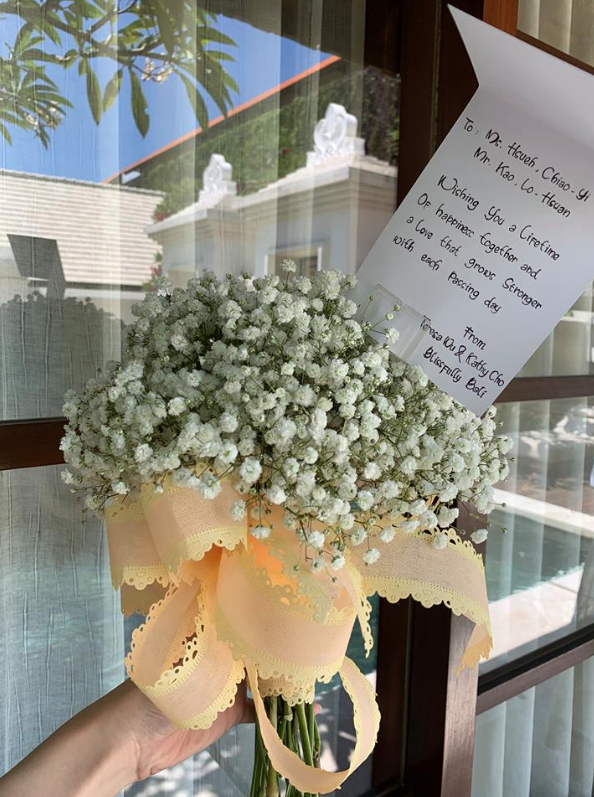 To : Ms. Hsueh, Chiao-Yi
Mr. Kao, Lo-Hsuan
Wishing You a Lifetime
Of happiness together and
a Love that grows Stronger
with each Passing day
From
Teresa Wu & Kathy Cho
Blissfully Bali